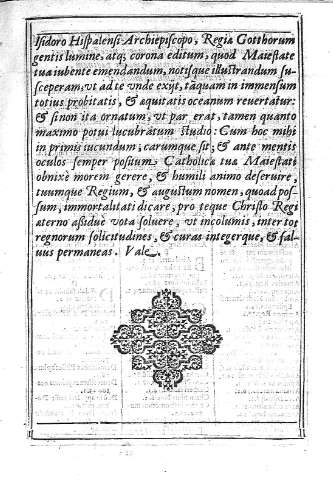 Isidoro Hispalensi Archiepiscopo, Regia Gotthorum
gentis lumine, atq; corona editum, quod Maiestate
tua iubente emendandum, notisque illustrandum su-
sceperam, vt ad te vnde exijt, tãquam in immensum
totius probitatis, & æquitatis oceanum reuertatur:
& si non ita ornatum, vt par erat, tamen quanto
maximo potui lucubratum studio: Cum hoc mihi
in primis iucundum, carumque sit; & ante mentis
oculos semper positum Catholicæ tuæ Maiestati
obnixè morem gerere, & humili animo deseruire,
tuumque Regium, & augustum nomen, quoad pos-
sum, immortalitati dicare, pro teque Christo Regi
æterno assidue vota soluere, vt incolumis, inter tot
regnorum solicitudines, & curas integerque, & sal-
uus permaneas. Vale.